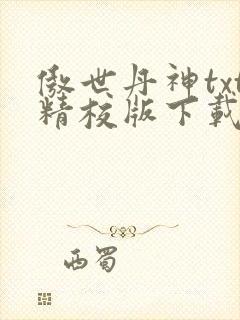 傲世丹神txt
精校版下载
西蜀